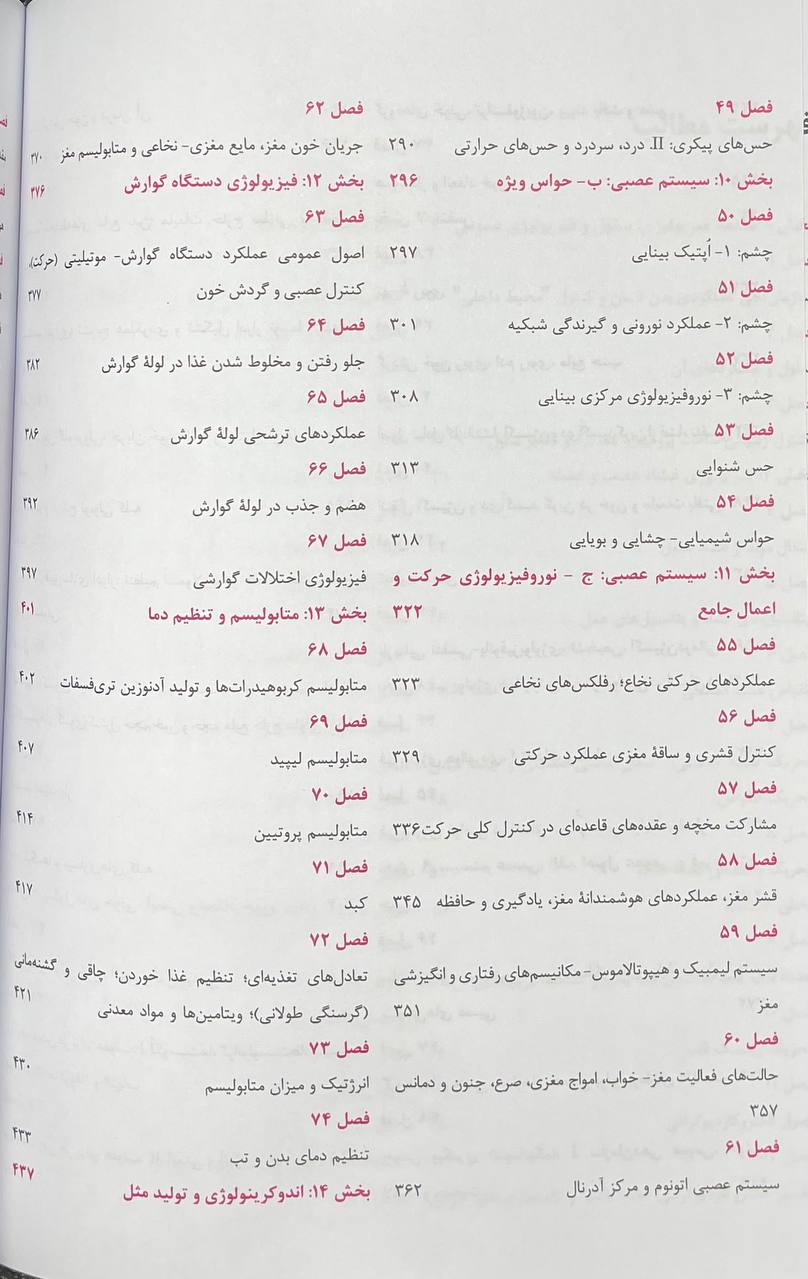 فصل ۴۹
حس‌های پیکری: II. درد، سردرد و حس‌های حرارتی ۲۹۰
بخش ۱۰: سیستم عصبی: ب- حواس ویژه ۲۹۶
فصل ۵۰
چشم: ۱- اُپتیک بینایی ۲۹۷
فصل ۵۱
چشم: ۲- عملکرد نورونی و گیرندگی شبکیه ۳۰۱
فصل ۵۲
چشم: ۳- نوروفیزیولوژی مرکزی بینایی ۳۰۸
فصل ۵۳
حس شنوایی ۳۱۳
فصل ۵۴
حواس شیمیایی- چشایی و بویایی ۳۱۸
بخش ۱۱: سیستم عصبی: ج - نوروفیزیولوژی حرکت و
اعمال جامع ۳۲۲
فصل ۵۵
عملکردهای حرکتی نخاع؛ رفلکس‌های نخاعی ۳۲۳
فصل ۵۶
کنترل قشری و ساقهٔ مغزی عملکرد حرکتی ۳۲۹
فصل ۵۷
مشارکت مخچه و عقده‌های قاعده‌ای در کنترل کلی حرکت ۳۳۶
فصل ۵۸
قشر مغز، عملکردهای هوشمندانهٔ مغز، یادگیری و حافظه ۳۴۵
فصل ۵۹
سیستم لیمبیک و هیپوتالاموس- مکانیسم‌های رفتاری و انگیزشی
مغز ۳۵۱
فصل ۶۰
حالت‌های فعالیت مغز- خواب، امواج مغزی، صرع، جنون و دمانس
۳۵۷
فصل ۶۱
سیستم عصبی اتونوم و مرکز آدرنال ۳۶۲
فصل ۶۲
جریان خون مغز، مایع مغزی- نخاعی و متابولیسم مغز ۳۷۰
بخش ۱۲: فیزیولوژی دستگاه گوارش ۳۷۶
فصل ۶۳
اصول عمومی عملکرد دستگاه گوارش- موتیلیتی (حرکت)،
کنترل عصبی و گردش خون ۳۷۷
فصل ۶۴
جلو رفتن و مخلوط شدن غذا در لولهٔ گوارش ۳۸۲
فصل ۶۵
عملکردهای ترشحی لولهٔ گوارش ۳۸۶
فصل ۶۶
هضم و جذب در لولهٔ گوارش ۳۹۲
فصل ۶۷
فیزیولوژی اختلالات گوارشی ۳۹۷
بخش ۱۳: متابولیسم و تنظیم دما ۴۰۱
فصل ۶۸
متابولیسم کربوهیدرات‌ها و تولید آدنوزین تری‌فسفات ۴۰۲
فصل ۶۹
متابولیسم لیپید ۴۰۷
فصل ۷۰
متابولیسم پروتیین ۴۱۴
فصل ۷۱
کبد ۴۱۷
فصل ۷۲
تعادل‌های تغذیه‌ای؛ تنظیم غذا خوردن؛ چاقی و گشنه‌مانی
(گرسنگی طولانی)؛ ویتامین‌ها و مواد معدنی ۴۲۱
فصل ۷۳
انرژتیک و میزان متابولیسم ۴۳۰
فصل ۷۴
تنظیم دمای بدن و تب ۴۳۳
بخش ۱۴: اندوکرینولوژی و تولید مثل ۴۳۷